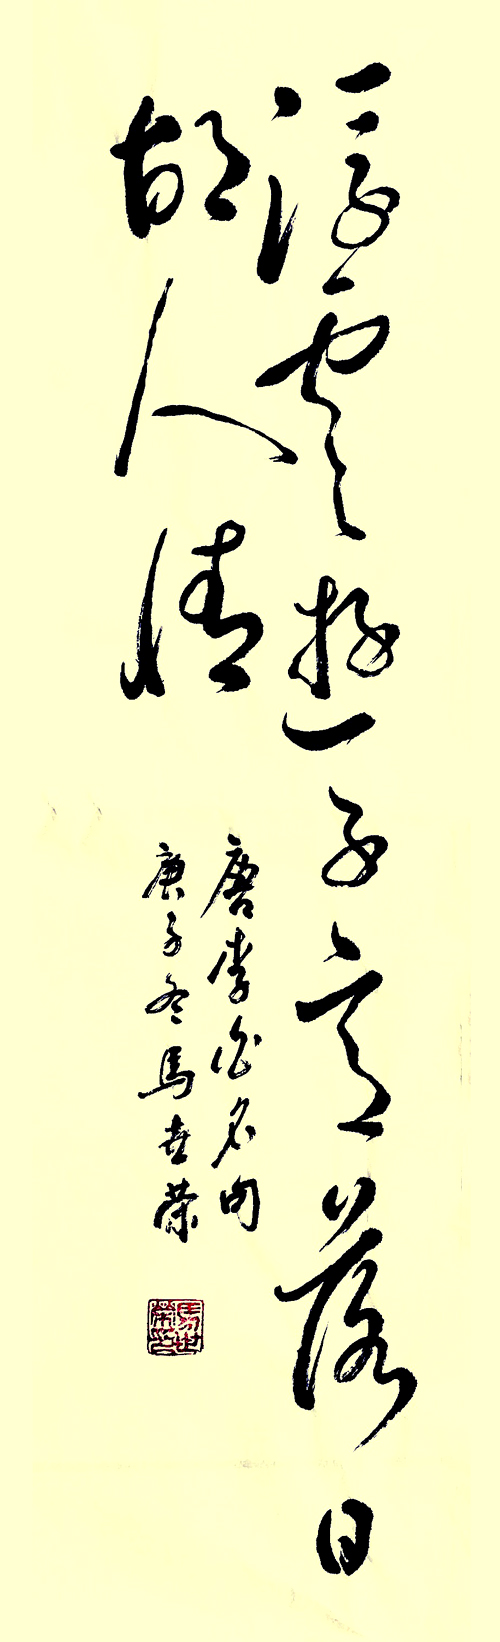 浮雲遊子意落日
故人情
唐李白名句
庚子冬馬世榮
馬世榮印